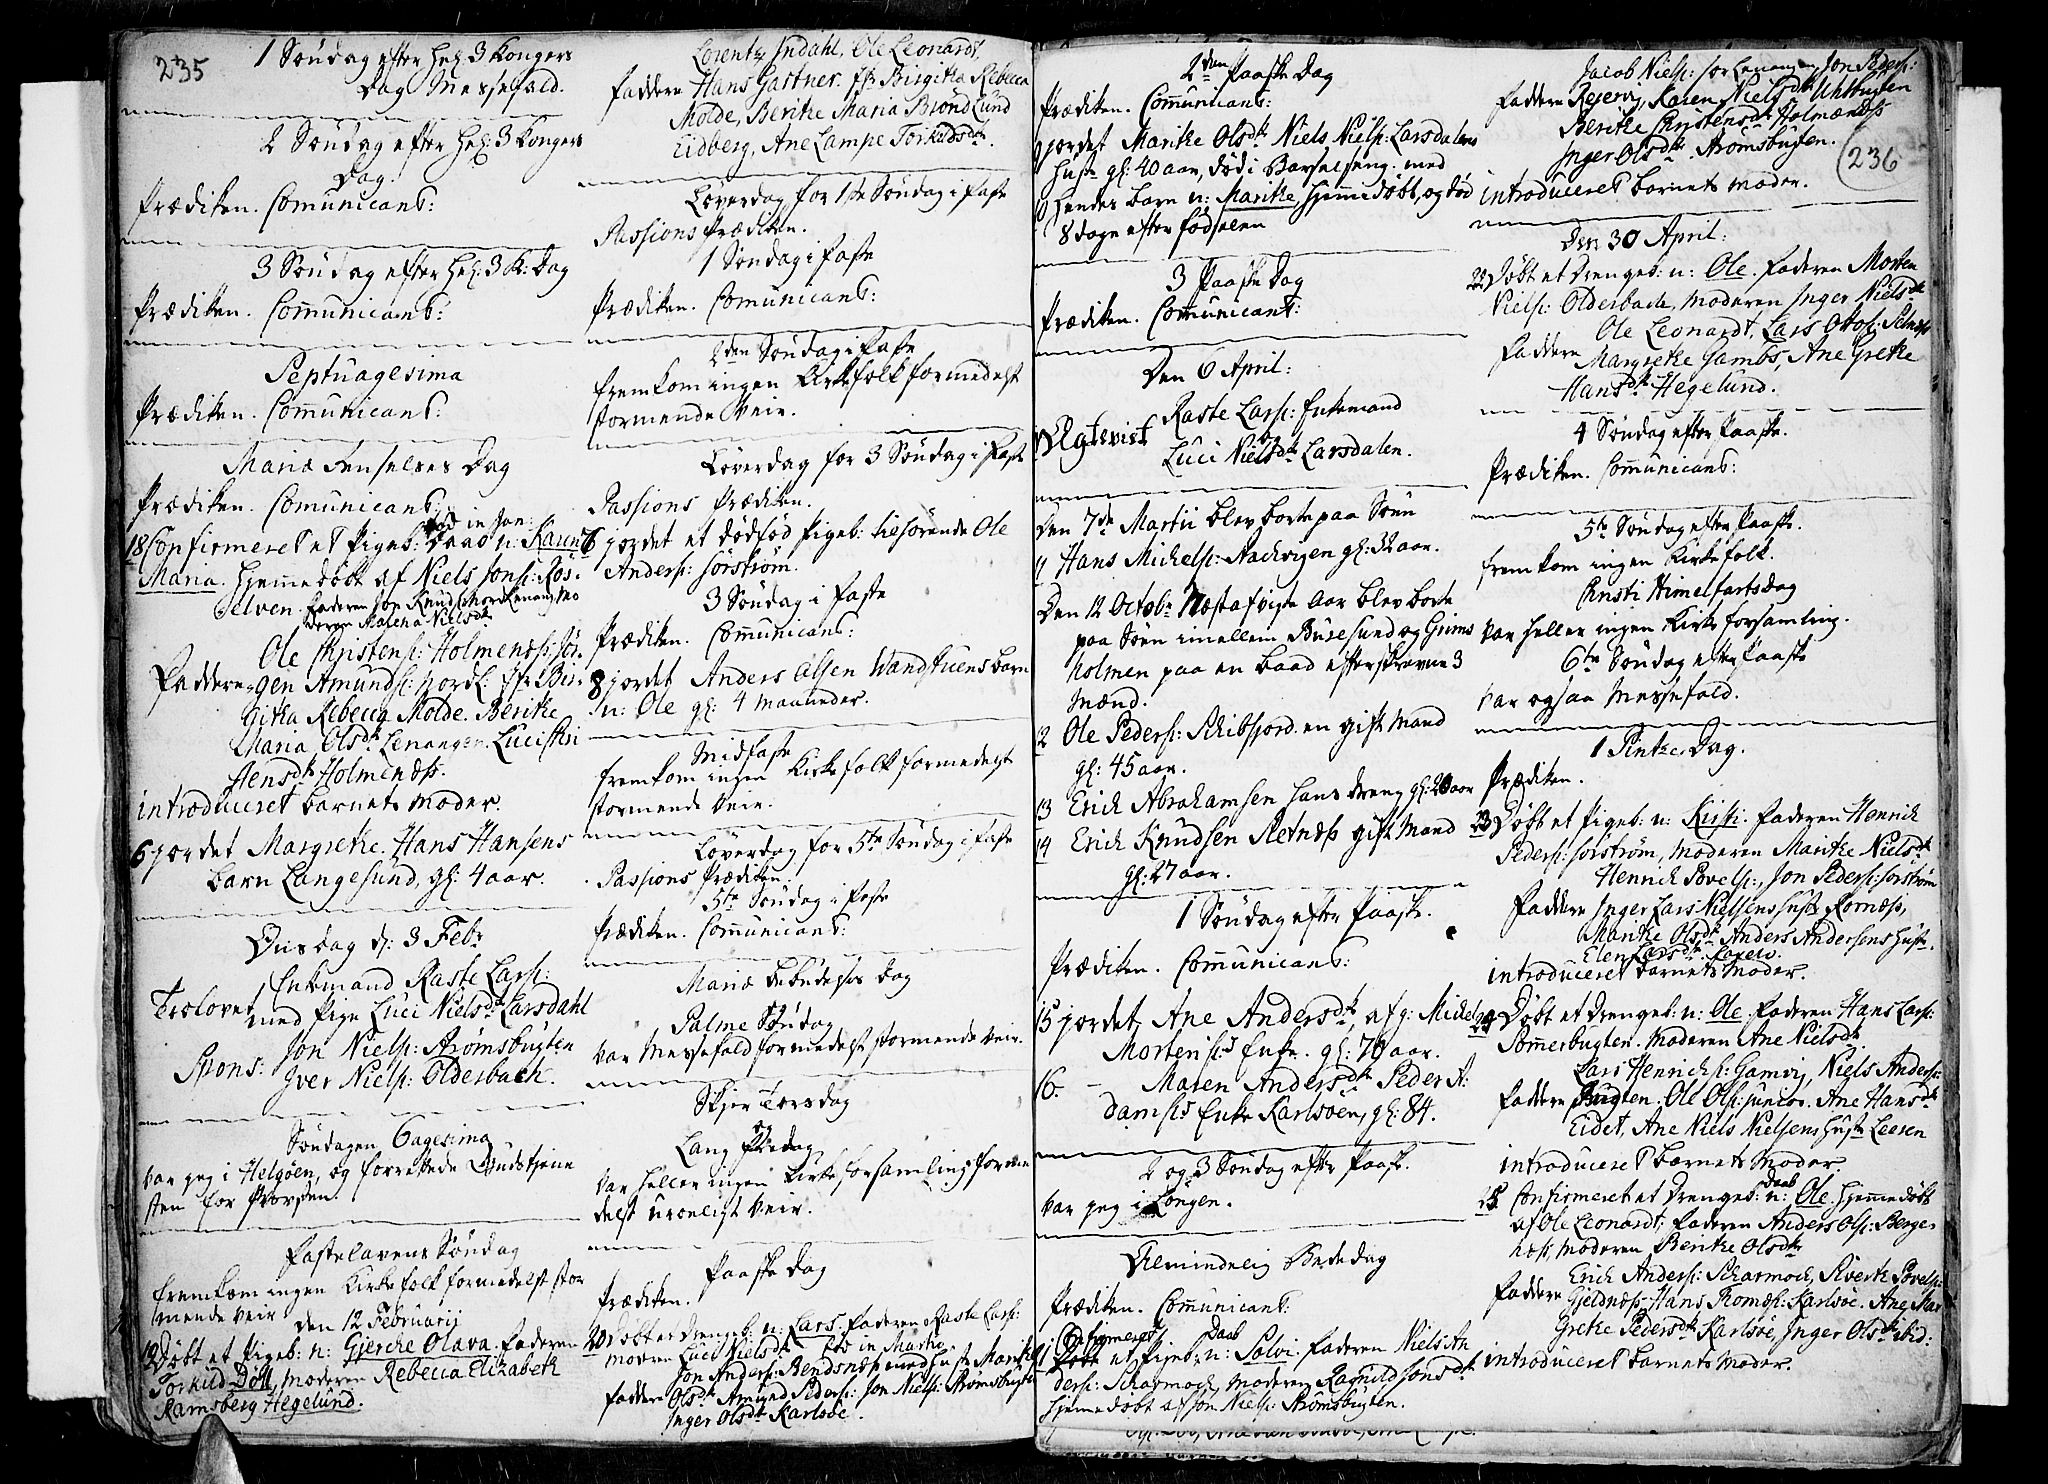 235
1 Søndag efter Hel: 3 Kongers
Dag Messefald.
2 Søndag efter Hel: 3 Kongers
Dag.
Prædiken. Comunicant:
3 Søndag efter Hel: 3 K: Dag
Prædiken. Comunicant:
Septuagesima
Prædiken. Comunicant:
Mariæ Renselses Dag
Prædiken. Comunicant:
fød in Jan:
18 Confirmeret et Pigeb: Daab n: Karen
Maria. Hjemmedøbt af Niels Jonss: Røs-
elven. Faderen Jon Knuds: Nordlenang Mo
deren Malena Nielsdtr
Ole Christens: Holmenæss: Jør-
Faddere gen Amunds: Nordl: Jfr Bir-
githa Rebecca Molde. Berithe
Maria Olsdtr Lenangen. Luci Kri
stensdtr Holmenæss.
introduceret Barnets Moder.
6 Jordet Margrethe. Hans Hansens
barn Langesund, gl: 4 aar.
Onsdag d: 3 Febr
Enkemand Raste Lars:
Trolovet
med Pige Luci Nielsdtr Larsdahl
Jon Niels: Strømsbugten
Spons:
Iver Niels: Olderbach.
Søndagen 6agesima
var jeg i Helgøen, og forrettede Gudstjene
sten for Provsten.
Fastelavens Søndag
fremkom ingen Kirkefolk formedelst stor
mende Veir
den 12 Februarij
19 Døbt et Pigeb: n: Gjerche Olava. Faderen
Torkild Døll, Moderen Rebecca Elizabeth
Ramsberg Hegelund.
Lorentz Indahl, Ole Leonardt,
Faddere Hans Gartner. Jfr Birgitha Rebecca
Molde, Berithe Maria Brønd Lund
Eidberg, Ane Lampe Torkildsdtr.
Løverdag for 1ste Søndag i Faste
Passions Prædiken.
1 Søndag i Faste
Prædiken. Comunicant:
2den Søndag i Faste
fremkom ingen Kirkefolk formedelst
stormende Veir.
Løverdag for 3 Søndag i Faste
Passions Prædiken.
7 Jordet et dødfød Pigeb: tilhørende Ole
Anders: Sørstrøm.
3 Søndag i Faste
Prædiken. Comunicant:
8 Jordet Anders Olsen Wandstuens barn
n: Ole gl: 4 maaneder.
Midfaste
fremkom ingen Kirkefolk formedelst
stormende Veir.
Løverdag for 5te Søndag i Faste
Passions Prædiken.
5te Søndag i Faste
Prædiken. Comunicant:
Mariæ Bebudelses Dag
Palme Søndag
var Messefald formedelst stormende Veir.
Skjer Torsdag
og
Lang Fredag
var heller ingen Kirkeforsamling forme
delst uroeligt Veir.
Paaske Dag
Prædiken.
20 Døbt et Drengeb: n: Lars. Faderen Raste Lars:
moderen Luci Nielsdtr
Jon Anders: Bendsnæs med hustr Marithe
Faddere Olsdtr Amund Peders: Jon Niels: Strømsbugten
Inger Olsdtr Karlsøe.
2den Paaske Dag
Prædiken. Communicant:
9 Jordet Marithe Olsdtr Niels Niels: Larsdalens
Hustr gl: 40 aar, død i Barselseng: med
10 hendes barn n: Marithe, hjemmedøbt, og død
8 dage efter Fødselen
3 Paaske Dag
Prædiken. Communicant:
Den 6 April:
Raste Lars: Enkemand
Ægteviet og
Luci Nielsdtr Larsdalen.
Den 7de Martii blev borte paa Søen
11 Hans Michels: Nachvigen gl: 32 aar.
Den 12 Octobr Næstafvigte Aar blev borte
paa Søen imellem Burøesund og Grims
holmen paa en Baad efterskrevne 3
Mænd.
12 Ole Peders: Schibsfjord en gift Mand
gl: 45 aar.
13 Erich Abrahamsen hans dreng gl: 20 aar
14 Erich Knudsen Sletnæs gift Mand
gl: 27 aar.
1 Søndag efter Paaske.
Prædiken. Communicant:
15 Jordet, Ane Andersdtr, afg: Michel
Mortens:s Enke. gl: 70 aar.
16. – Maren Andersdtr Peder A:
dams:s Enke Karlsøen, gl: 84.
2 og 3 Søndag efter Paaske.
var jeg i Longen.
Almindelig Bededag
Prædiken. Communicant:
Confirmeret Daab
21 Døbt et Pigeb: n: Solvi. Faderen Niels An
ders: Scharmoch, Moderen Ragnild Jonsdtr
hjemmedøbt af Jon Niels: Strømsbugten.
Jacob Niels: Sør Lenangen, Jon Peders:
Faddere Reservig, Karen Nielsdtr Whitbugten
Berithe Christensdtr Holmenæss
Inger Olsdtr Strømsbugten.
236
introduceret Barnets Moder.
Den 30 April:
22 Døbt et Drengeb: n: Ole. Faderen Morten
Niels: Olderbach, moderen Inger Nielsdtr
Ole Leonardt, Lars Ottos: Sletnæs
Faddere Margrethe Gambs, Ane Grethe
Hansdtr Hegelund.
4 Søndag efter Paaske.
Prædiken. Communicant:
5te Søndag efter Paaske.
fremkom ingen Kirkefolk.
Christi Himelfartsdag
var heller ingen Kirkeforsamling.
6te Søndag efter Paaske
var ogsaa Messefald.
1 Pintze Dag.
Prædiken.
23 Døbt et Pigeb: n: Kirsti. Faderen Henrich
Peders: Sørstrøm, Moderen Marithe Nielsdtr
Henrich Povels:, Jon Peders: Sørstrøm
Faddere Inger Lars Nielsens Hustr Kornæs,
Marithe Olsdtr Anders Andersens Hustr.
Elen Larsdtr
introduceret Barnets Moder.
24 Døbt et Drengeb: n: Ole. Faderen Hans Lars:
Sommerbugten. Moderen Ane Nielsdtr.
Lars Henrichs: Gamvig, Niels Anders:
Faddere Bugten. Ole Ols: Junior. Ane Hansdtr
Eidet, Ane Niels Nielsens Hustr Leeren
introduceret Barnets Moder.
Daab
25 Confirmeret et Drengeb: n: Ole. Hjemmedøbt
af Ole Leonardt: Faderen Anders Ols: Berge-
næs, Moderen Berithe Olsdtr
Erich Anders: Scharmoch, Sivert Povels:
Faddere Gjeldnæs, Hans Thomæs: Karlsøe. Ane Mar
Grethe Pedersdtr Karlsøe, Inger Olsdtr ibid:
introduceret Barnets Moder.